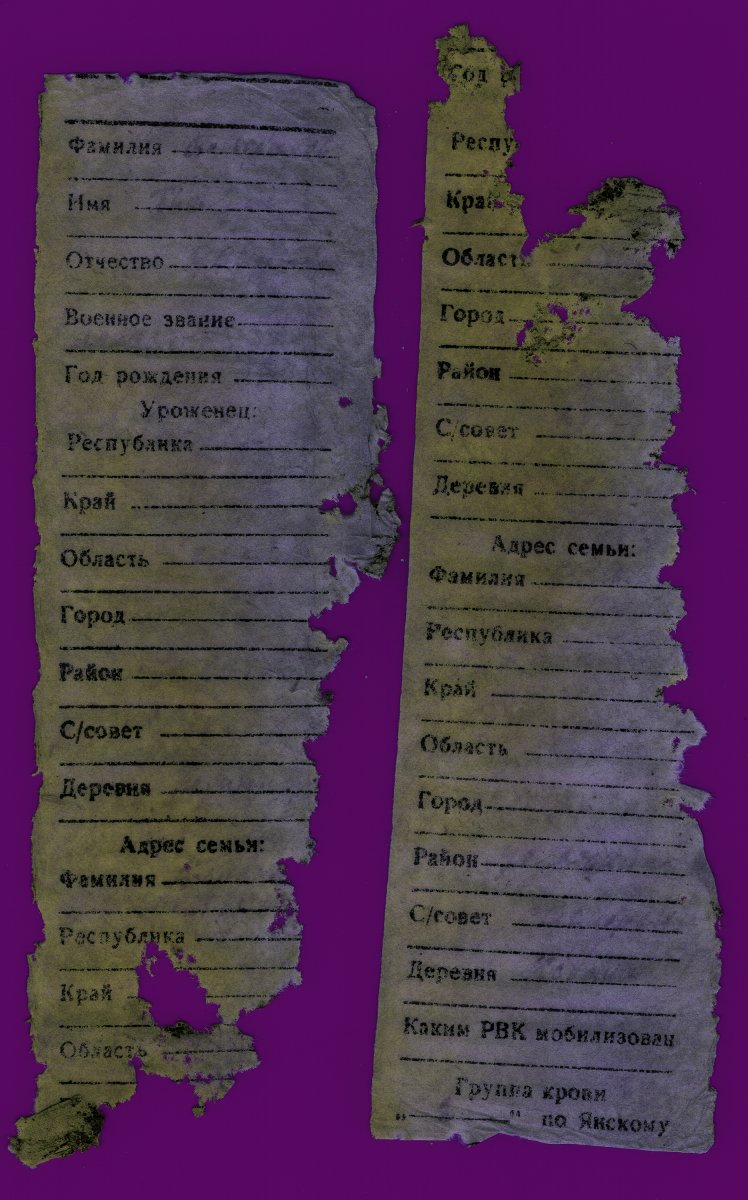 Фамилия
Имя
Отчество
Военное звание
Год рождения
Уроженец:
Республика
Край
Область
Город
Район
С/совет
Деревня
Адрес семьи:
Фамилия
Республика
Край
Область
Год
Респу
Край
Область
Город
Район
С/совет
Деревня
Адрес семьи:
Фамилия
Республика
Край
Область
Город
Район
С/совет
Деревня
Каким РВК мобилизован
Группа крови
„ " по Янскому